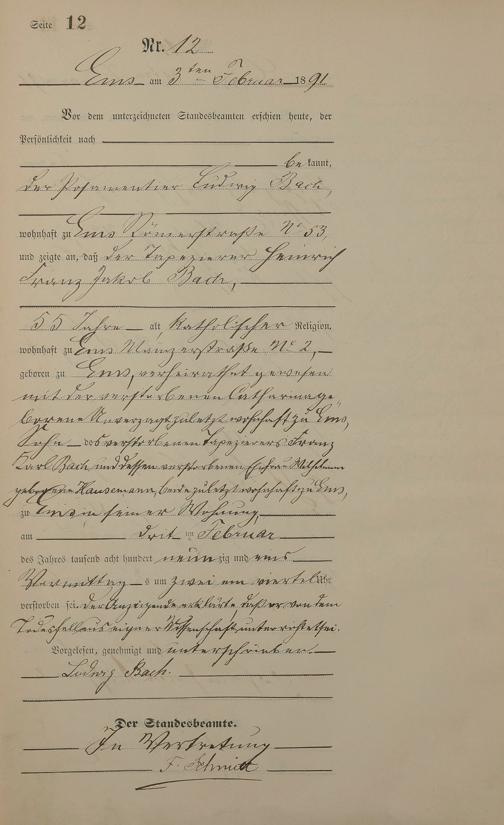 Seite 12
Nr. 12
Ems am 3ten Februar 1891
Vor dem unterzeichneten Standesbeamten erschien heute, der
Persönlichkeit nach
be kannt,
der Posamentier Ludwig Bach,
wohnhaft zu Ems Römerstraße No 53
und zeigte an, daß der Tapezierer Heinrich
Franz Jakob Bach,
55 Jahre alt, katholischer Religion,
wohnhaft zu Ems No 2,
geboren zu Ems, verheirathet gewesen
mit der verstorbenen Catharina ge"
borene Unverzagt zuletzt wohnhaft zu Ems,
Sohn des verstorbenen Tapezierers Franz
Karl Bach und dessen verstorbenen Ehefrau
geborene Hausemann, beide zuletzt wohnhaft zu Ems,
zu Ems in seiner Wohnung,
am drit en Februar
des Jahres tausend acht hundert neun zig und eins
Vormittag s um zwei ein viertel Uhr
verstorben sei. Der Anzeigende erklärte, daß er von dem
Todesfall aus eigner Wissenschaft unterrichtet sei.
Vorgelesen, genehmigt und unterschrieben
Ludwig Bach.
Der Standesbeamte.
In Vertretung
F. Schmitt